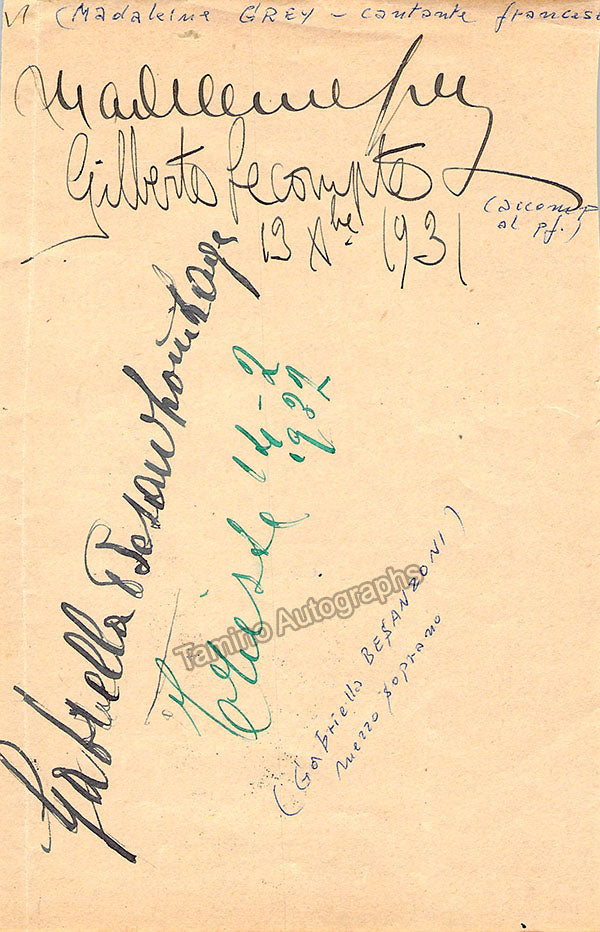 VI (Madaleine GREY - cantante frances
Madeleine Grey
Gilberte Lecompte
(accomp
al pf.)
13 Xbre 1931
Gabriella Besanzoni Lage
Trieste 14-2
1932
(Gabriella BESANZONI)
mezzo soprano
Tamino Autographs